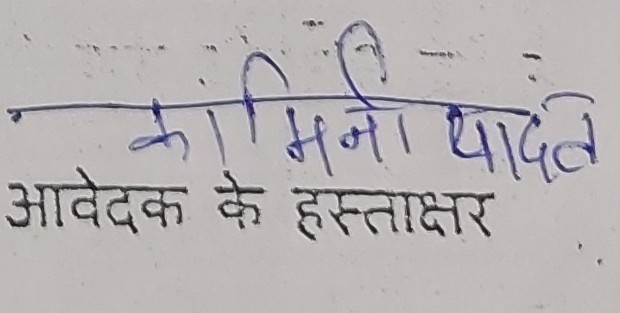 कामिनी यादव
आवेदक के हस्ताक्षर